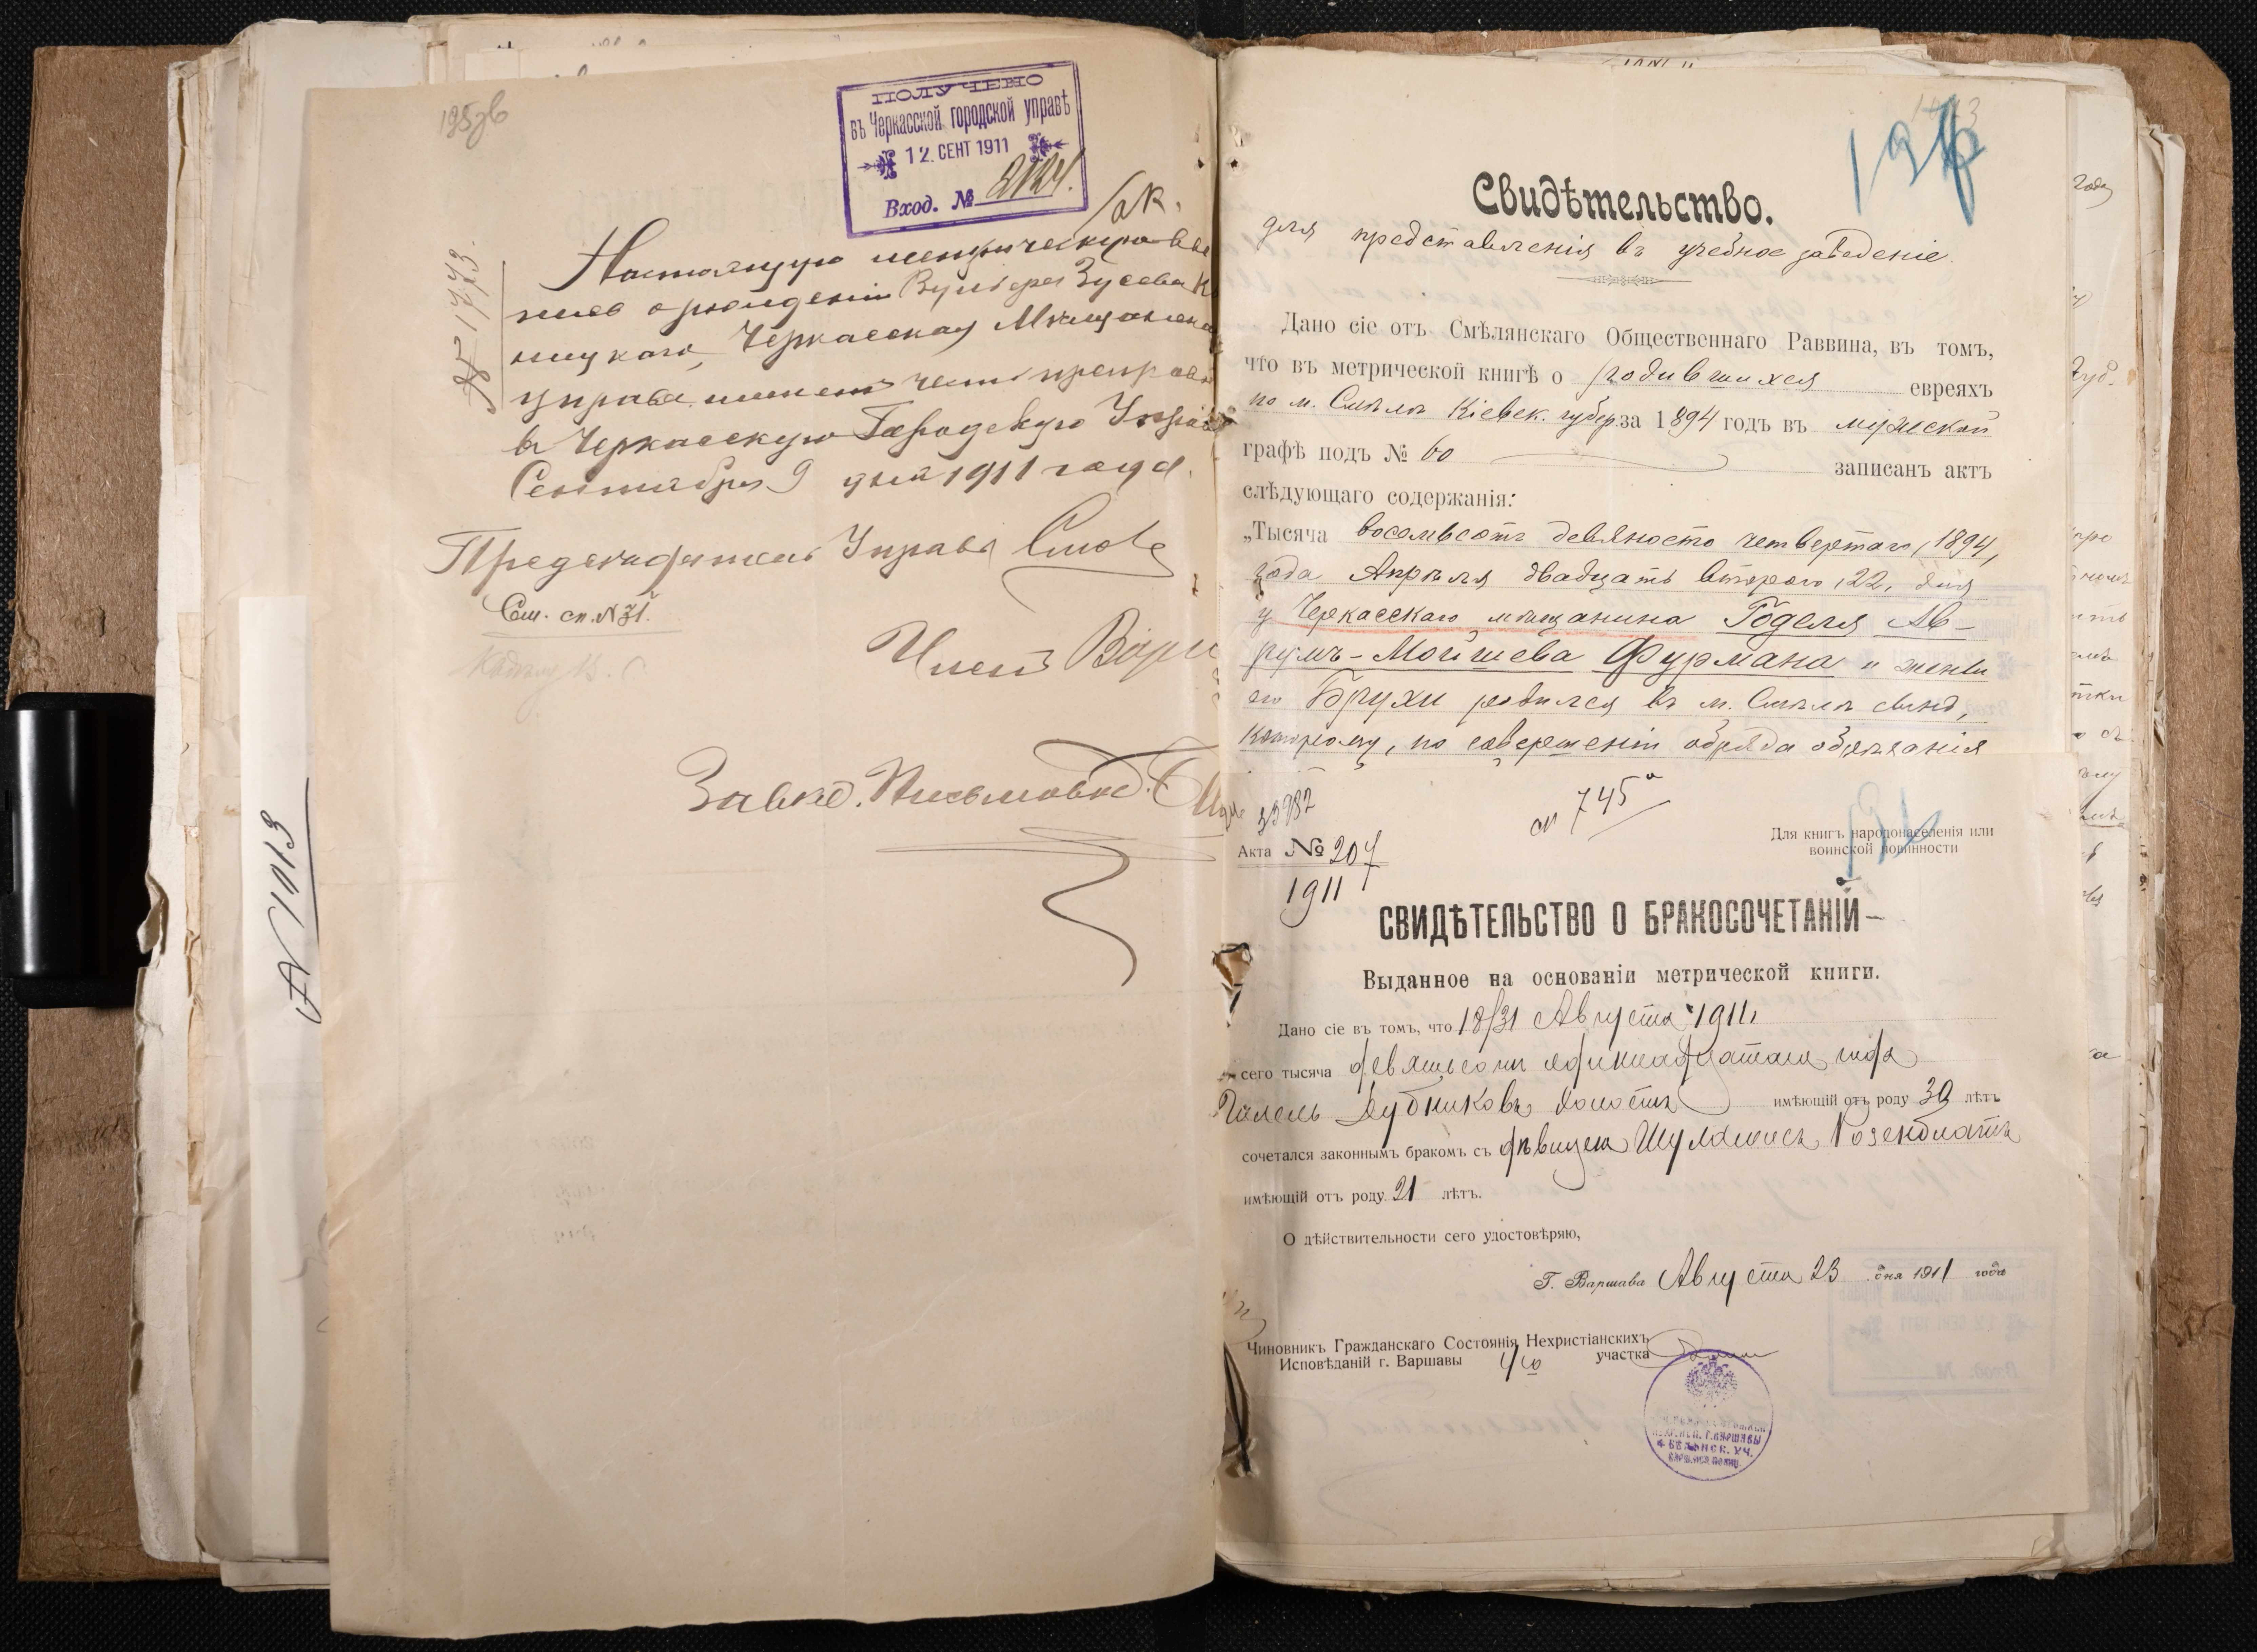 195об
ПОЛУЧЕНО
въ Черкасской городской управѣ
12. СЕНТ 1911
Вход. №
№ 1773.
Настоящую метрическую
о рожденіи Зусева
Черкасская Мѣщанская
управа имеет честь препров
въ Черкасскую Городскую Управ
Сентября 9 дня 1911 года.
Председатель Управы
См. сп. № 31.
Членъ
Завѣд. Письмовод.
№ 1013
Свидѣтельство.
для представленія въ учебное заведеніе.
Дано сіе отъ Смѣлянскаго Общественнаго Раввина, въ томъ,
что въ метрической книгѣ о родившихся евреяхъ
по м. Смѣлѣ Кіевск. губер. за 1894 годъ въ мужской
графѣ подъ № 60 записанъ актъ
слѣдующаго содержанія:
„Тысяча восемьсотъ девяносто четвертаго, 1894,
года Апрѣля двадцать второго, 22, дня
у Черкасскаго мѣщанина Годеля Ав-
румъ-Мойшева Фурмана и жены
его Брухи родился въ м. Смѣлѣ сынъ,
которому, по совершеніи обряда обрѣзанія
745
Акта № 207
1911
Для книгъ народонаселенія или
воинской повинности
СВИДѢТЕЛЬСТВО О БРАКОСОЧЕТАНІЙ
Выданное на основаніи метрической книги.
Дано сіе въ томъ, что 18/31 Августа 1911
сего тысяча девятьсотъ одиннадцатаго года
Дубниковъ холостъ имѣющій отъ роду 30 лѣтъ
сочетался законнымъ бракомъ съ дѣвицею Розенблатъ
имѣющій отъ роду 21 лѣтъ.
О дѣйствительности сего удостовѣряю,
Г. Варшава Августа 23 дня 1911 года
Чиновникъ Гражданскаго Состоянія Нехристіанскихъ
Исповѣданій г. Варшавы 4го участка